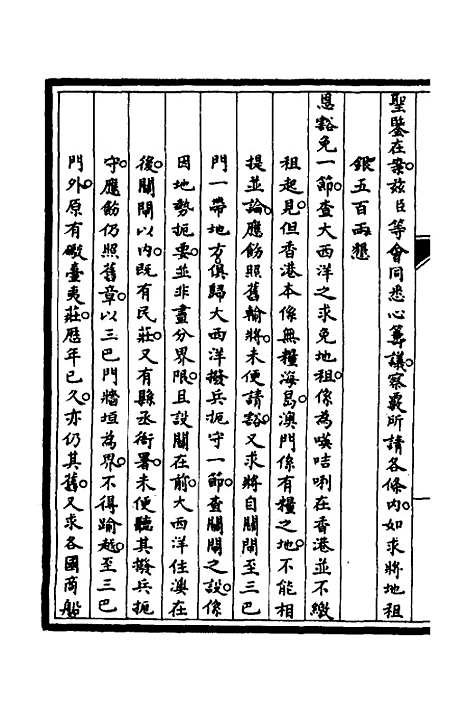 聖鑒在案。茲臣等會同悉心籌議。察覈所請各條內。如求將地租
銀五百兩懇
恩豁免一節。查大西洋之求免地租。係為嘆咭唎在香港並不繳
租起見。但香港本係無糧海島。澳門係有糧之地。不能相
提並論。應飭照舊輸將。未便請豁。又求將自關閘至三巴
門一帶地方俱歸大西洋撥兵扼守一節。查關閘之設。係
因地勢扼要。並非畫分界限。且設關在前。大西洋住澳在
後。關閘以內。既有民莊。又有縣丞衙署。未便聽其撥兵扼
守。應飭仍照舊章。以三巴門牆垣為界。不得踰越。至三巴
門外。原有礮臺夷莊。歷年已久。亦仍其舊。又求各國商船